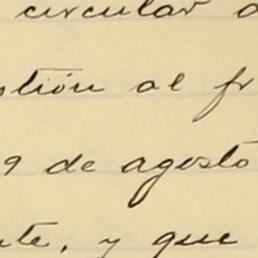 circular
stión al fr
9 de agosto
nte, y que